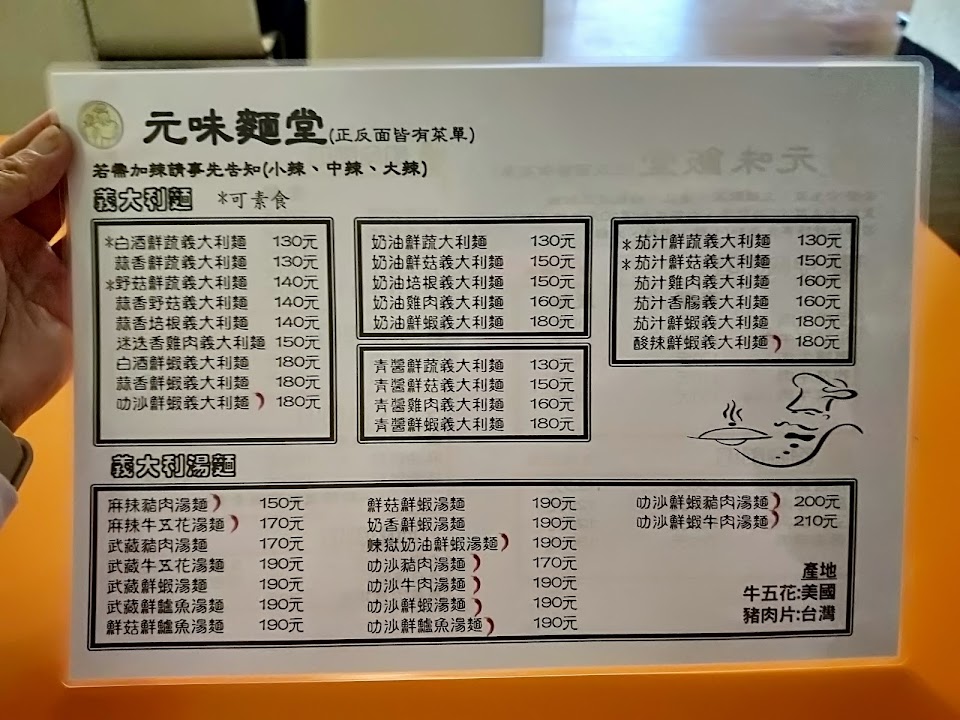 元味麵堂(正反面皆有菜單)
若需加辣請事先告知(小辣、中辣、大辣)
義大利麵 *可素食
*白酒鮮蔬義大利麵 130元
蒜香鮮蔬義大利麵 130元
*野菇鮮蔬義大利麵 140元
蒜香野菇義大利麵 140元
蒜香培根義大利麵 140元
迷迭香雞肉義大利麵 150元
白酒鮮蝦義大利麵 180元
蒜香鮮蝦義大利麵 180元
叻沙鮮蝦義大利麵 180元
奶油鮮蔬義大利麵 130元
奶油鮮菇義大利麵 150元
奶油培根義大利麵 150元
奶油雞肉義大利麵 160元
奶油鮮蝦義大利麵 180元
青醬鮮蔬義大利麵 130元
青醬鮮菇義大利麵 150元
青醬雞肉義大利麵 160元
青醬鮮蝦義大利麵 180元
*茄汁鮮蔬義大利麵 130元
*茄汁鮮菇義大利麵 150元
茄汁雞肉義大利麵 160元
茄汁香腸義大利麵 160元
茄汁鮮蝦義大利麵 180元
酸辣鮮蝦義大利麵 180元
義大利湯麵
麻辣豬肉湯麵 150元
麻辣牛五花湯麵 170元
武藏豬肉湯麵 170元
武藏牛五花湯麵 190元
武藏鮮蝦湯麵 190元
武藏鮮鱸魚湯麵 190元
鮮菇鮮鱸魚湯麵 190元
鮮菇鮮蝦湯麵 190元
奶香鮮蝦湯麵 190元
煉獄奶油鮮蝦湯麵 190元
叻沙豬肉湯麵 170元
叻沙牛肉湯麵 190元
叻沙鮮蝦湯麵 190元
叻沙鮮鱸魚湯麵 190元
叻沙鮮蝦豬肉湯麵 200元
叻沙鮮蝦牛肉湯麵 210元
產地
牛五花:美國
豬肉片:台灣